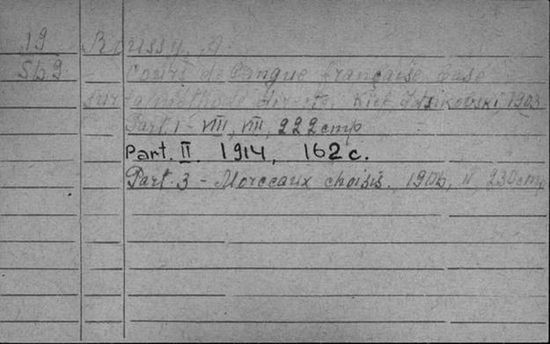 19 Roussy, A.
Sb9 Cours de langue française basé
sur la méthode directe. Kief, Idzikovski, 1903
Part. 1 - VIII, VIII, 222 cmp
Part. II. 1914, 162 c.
Part. 3 - Morceaux choisis. 1906, II, 230 cmp.